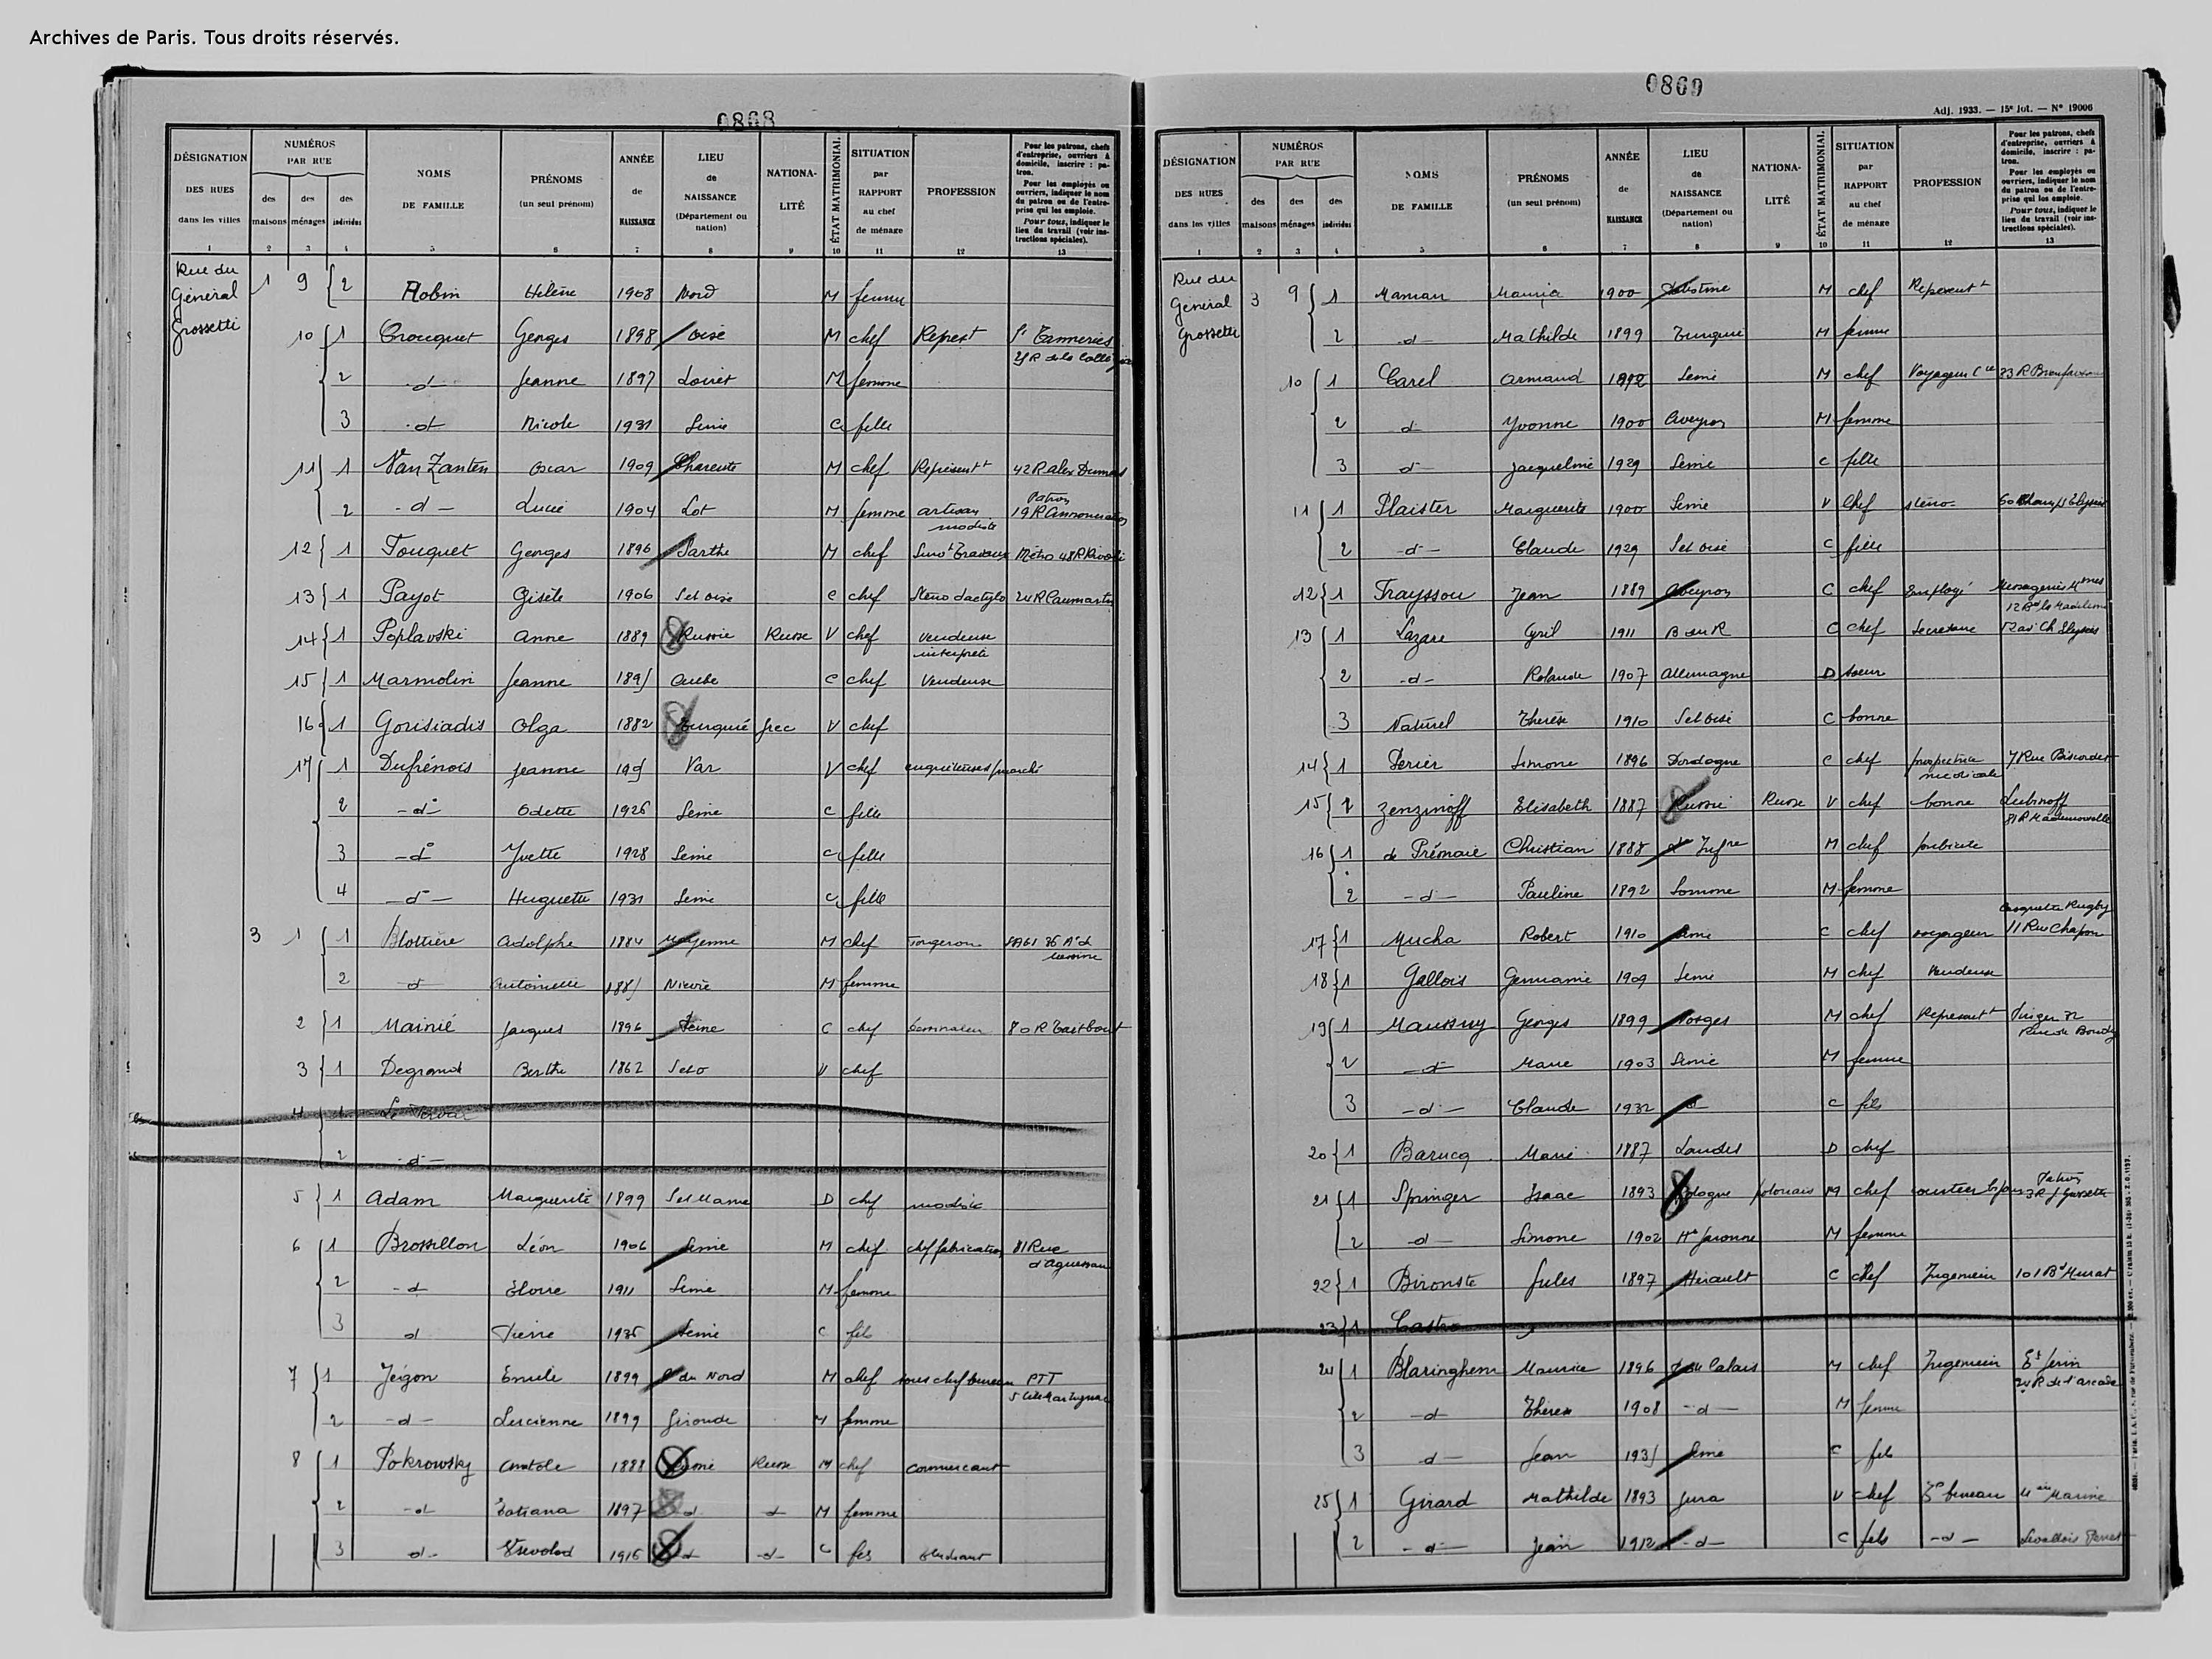 Archives de Paris. Tous droits réservés.
0868
DÉSIGNATION DES RUES dans les villes 1
NUMÉROS PAR RUE
des maisons 2
des ménages 3
des individus 4
NOMS DE FAMILLE 5
PRÉNOMS (un seul prénom) 6
ANNÉE de NAISSANCE 7
LIEU de NAISSANCE (Département ou nation) 8
NATIONALITÉ 9
ÉTAT MATRIMONIAL 10
SITUATION par RAPPORT au chef de ménage 11
PROFESSION 12
Pour les patrons, chefs d'entreprise, ouvriers à domicile, inscrire : patron.
Pour les employés ou ouvriers, indiquer le nom du patron ou de l'entreprise qui les emploie.
Pour tous, indiquer le lieu du travail (voir instructions spéciales).
13
Rue du Général Grossetti
1 9 2 Robin Hélène 1908 Nord M femme
10 1 Crocquet Georges 1898 Oise M chef Represt Tanneries
2 d Jeanne 1897 Loiret M femme
3 d Nicole 1931 Seine C fille
11 1 Van Zanten Oscar 1909 Charente M chef Représentt 42 R alex Dumas
2 - d - Lucie 1904 Lot M femme artisan modiste Patron 19 R Annonciation
12 1 Touquet Georges 1896 Sarthe M chef Métro 48 R Rivoli
13 1 Payot Gisèle 1906 S et Oise C chef Steno dactylo 24 R Caumartin
14 1 Poplavski Anne 1889 Russie Russe V chef vendeuse interprete
15 1 Marmolin Jeanne 189 Aube C chef Vendeuse
16 1 Gorisiadis Olga 1882 Turquie grec V chef
17 1 Dufrénois Jeanne Var V chef
2 - d° Odette 1926 Seine C fille
3 - d° Yvette 1928 Seine C fille
4 - d - Huguette 1931 Seine C fille
3 1 1 Blottière Adolphe 1884 Mayenne M chef Forgeron
2 d Antoinette 188 Nievre M femme
2 1 Mainié Jacques 1896 Seine C chef 80 R Taitbout
3 1 Degrand Berthe 1862 S et O V chef
4 1
2 - d -
5 1 Adam Marguerite 1899 S et Marne D chef modiste
6 1 Brossillon Léon 1906 Seine M chef chef fabrication 81 Rue d'Aguesseau
2 - d 1911 Seine M femme
3 d Pierre 193 Seine C fils
7 1 Jégon Emile 1899 C du Nord M chef sous chef bureau PTT
2 - d - Lucienne 1899 Gironde M femme
8 1 Pokrowsky Anatole 1888 Russie Russe M chef commercant
2 - d Tatiana 1897 d d M femme
3 d - Vsevolod 1916 d - d - C fils étudiant
0869
Adj. 1933. — 15e lot. — N° 19006
DÉSIGNATION DES RUES dans les villes 1
NUMÉROS PAR RUE
des maisons 2
des ménages 3
des individus 4
NOMS DE FAMILLE 5
PRÉNOMS (un seul prénom) 6
ANNÉE de NAISSANCE 7
LIEU de NAISSANCE (Département ou nation) 8
NATIONALITÉ 9
ÉTAT MATRIMONIAL 10
SITUATION par RAPPORT au chef de ménage 11
PROFESSION 12
Pour les patrons, chefs d'entreprise, ouvriers à domicile, inscrire : patron.
Pour les employés ou ouvriers, indiquer le nom du patron ou de l'entreprise qui les emploie.
Pour tous, indiquer le lieu du travail (voir instructions spéciales).
13
Rue du Général Grossetti
3 9 1 Maman 1900 M chef Represent t
2 - d - Mathilde 1899 Turquie M femme
10 1 Carel Armand Seine M chef Voyageur Cce
2 d Yvonne 1900 Aveyron M femme
3 d - Jacqueline 1929 Seine C fille
11 1 Plaister Marguerite 1900 Seine V chef sténo -
2 - d - Claude 1929 S et Oise C fille
12 1 Frayssou Jean 1889 Aveyron C chef Employé Messageries Mmes 12 Bd la Madeleine
13 1 Lazare Cyril 1911 B du R C chef Secretaire 52 av Ch Elysées
2 - d - Rolande 1907 Allemagne D soeur
3 Naturel Thérèse 1910 S et Oise C bonne
14 1 Perier Simone 1896 Dordogne C chef
15 1 Zenzinoff Elisabeth 1887 Russie Russe V chef bonne Lubinoff 81 R Mademoiselle
16 1 de Prémare Christian 1888 M chef
2 - d - Pauline 1892 Somme M femme
17 1 Mucha Robert 1910 C chef voyageur Casquette Rugby 11 Rue Chapon
18 1 Gallois Germaine 1909 Seine M chef Vendeuse
19 1 Georges 1899 Vosges M chef Represent t
2 - d - Marie 1903 Seine M femme
3 - d - Claude 1932 d C fils
20 1 Barucq Marie 1887 Landes D chef
21 1 Springer Isaac 1893 Pologne polonais M chef Patron
2 - d - Simone 1902 Hte Garonne M femme
22 1 Bironste Jules 1897 Hérault C chef Ingenieur 101 Bd Murat
23 1 Castro
24 1 Blaringhem Maurice 1896 P de Calais M chef Ingenieur
2 - d 1908 - d - M femme
3 d - Jean 193 Seine C fils
25 1 Girard Mathilde 1893 Jura V chef
2 - d - Jean 1912 - d - C fils - d - Levallois Perret